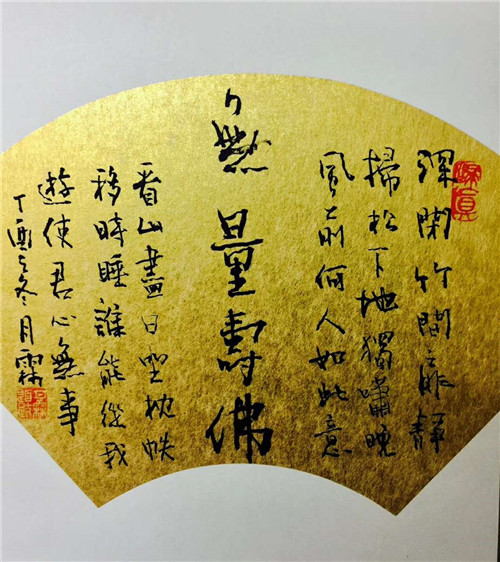 深閉竹間扉靜
掃松下地獨嘯晚
風前何人知此意
無量壽佛
看山盡日坐枕帙
移時睡誰能從我
遊使君心無事
丁酉之冬月霖